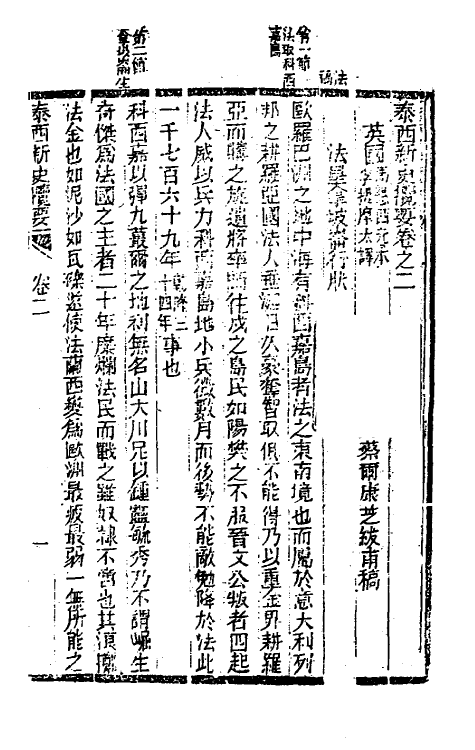 泰西新史攬要卷之二
英國馬懇西元本
李提摩太譯
蔡爾康芝紱甫稿
法皇拿坡崙行狀
第一節
法取科西
嘉島
歐羅巴洲之地中海有科西嘉島者法之東南境也而屬於意大利列
邦之耕羅亞國法人垂涎已久豪奪智取俱不能得乃以重金畀耕羅
亞而購之旋遣將率師往戍之島民如陽樊之不服晉文公叛者四起
法人威以兵力科西嘉島地小兵微數月而後勢不能敵勉降於法此
一千七百六十九年乾隆三十四年事也
第二節
科西嘉以彈丸蕞爾之地初無名山大川足以鍾靈毓秀乃不謂崛生
奇傑爲法國之主者二十年糜爛法民而戰之雖奴隸不啻也其浪擲
法金也如泥沙如瓦礫遂使法蘭西變爲歐洲最疲最弱一無所能之
泰西新史攬要
卷二
一